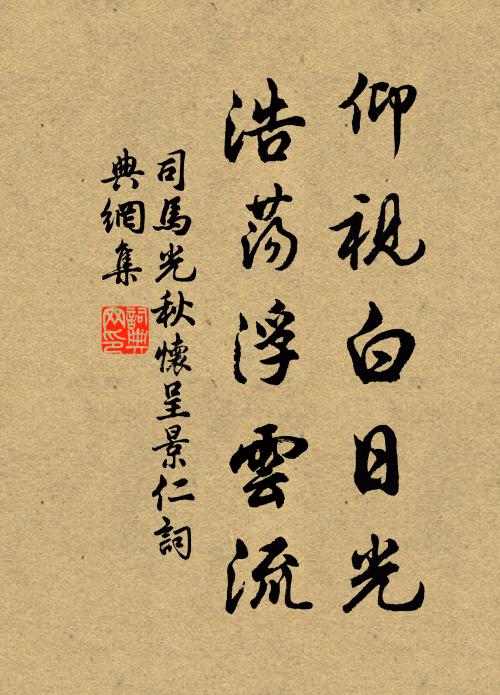 仰視白日光
浩蕩浮雲流
司馬光秋懷呈景仁詞
典網集
詞典
网印